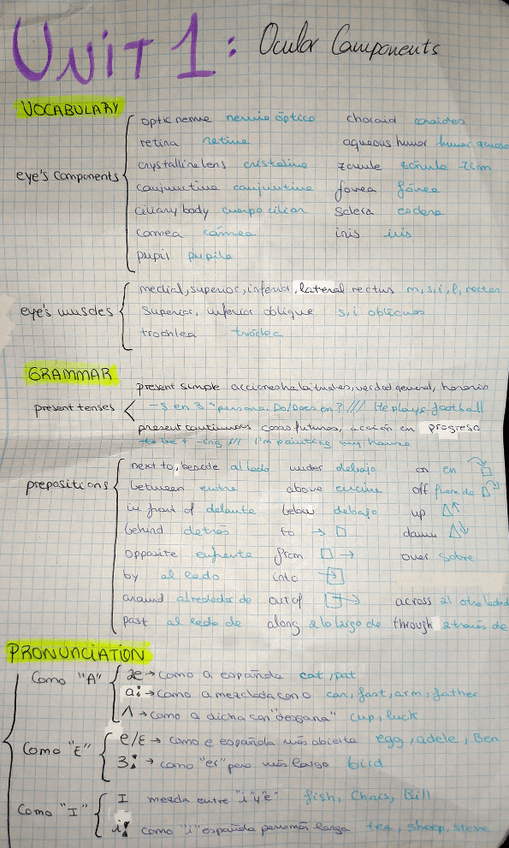 Unit 1: Ocular Components
VOCABULARY
optic nerve nervio óptico choroid coroides
retina retina aqueous humor humor acuoso
crystalline lens cristalino zonule zónula zinn
eye's components conjuntiva conjuntiva fovea fóvea
ciliary body cuerpo ciliar sclera
cornea córnea iris iris
pupil pupila
medial, superior, inferior, lateral rectus m, s, i, l, rectos
eye's muscles superior, inferior oblique s, i oblicuos
trochlea tróclea
GRAMMAR
present simple acciones habituales, verdad general, horario
present tenses -s en 3ª persona. Do/Does en ? /// He plays football
present continuous cosas futuras, acción en progreso
to be + -ing /// I'm painting my house
next to, beside al lado under debajo on en
prepositions between entre above encima off fuera de
in front of delante below debajo up
behind detrás to → down
opposite enfrente from → over sobre
by al lado into →
around alrededor de out of → across al otro lado
past al lado de along a lo largo de through a través de
PRONUNCIATION
Como "A" æ → como a española cat, pat
a: → como a mezclada con o car, fast, arm, father
ʌ → como a dicha con "desgana" cup, luck
Como "E" e/ɛ → como e española más abierta egg, adele, Ben
3: → como "er" pero más largo bird
Como "I" I mezcla entre "i y e" fish, Chris, Bill
i: como "i" española pero más larga tea, sheep, steve